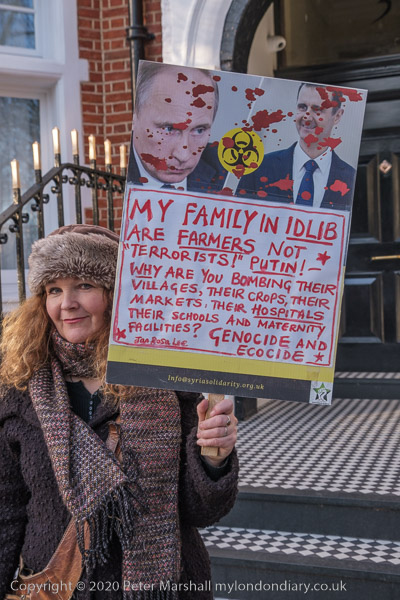 MY FAMILY IN IDLIB
ARE FARMERS NOT
"TERRORISTS!" PUTIN! –
WHY ARE YOU BOMBING THEIR
VILLAGES, THEIR CROPS, THEIR
MARKETS, THEIR HOSPITALS
THEIR SCHOOLS AND MATERNITY
FACILITIES? GENOCIDE AND
ECOCIDE
Info@syriasolidarity.org.uk
Copyright © 2020 Peter Marshall mylondondiary.co.uk